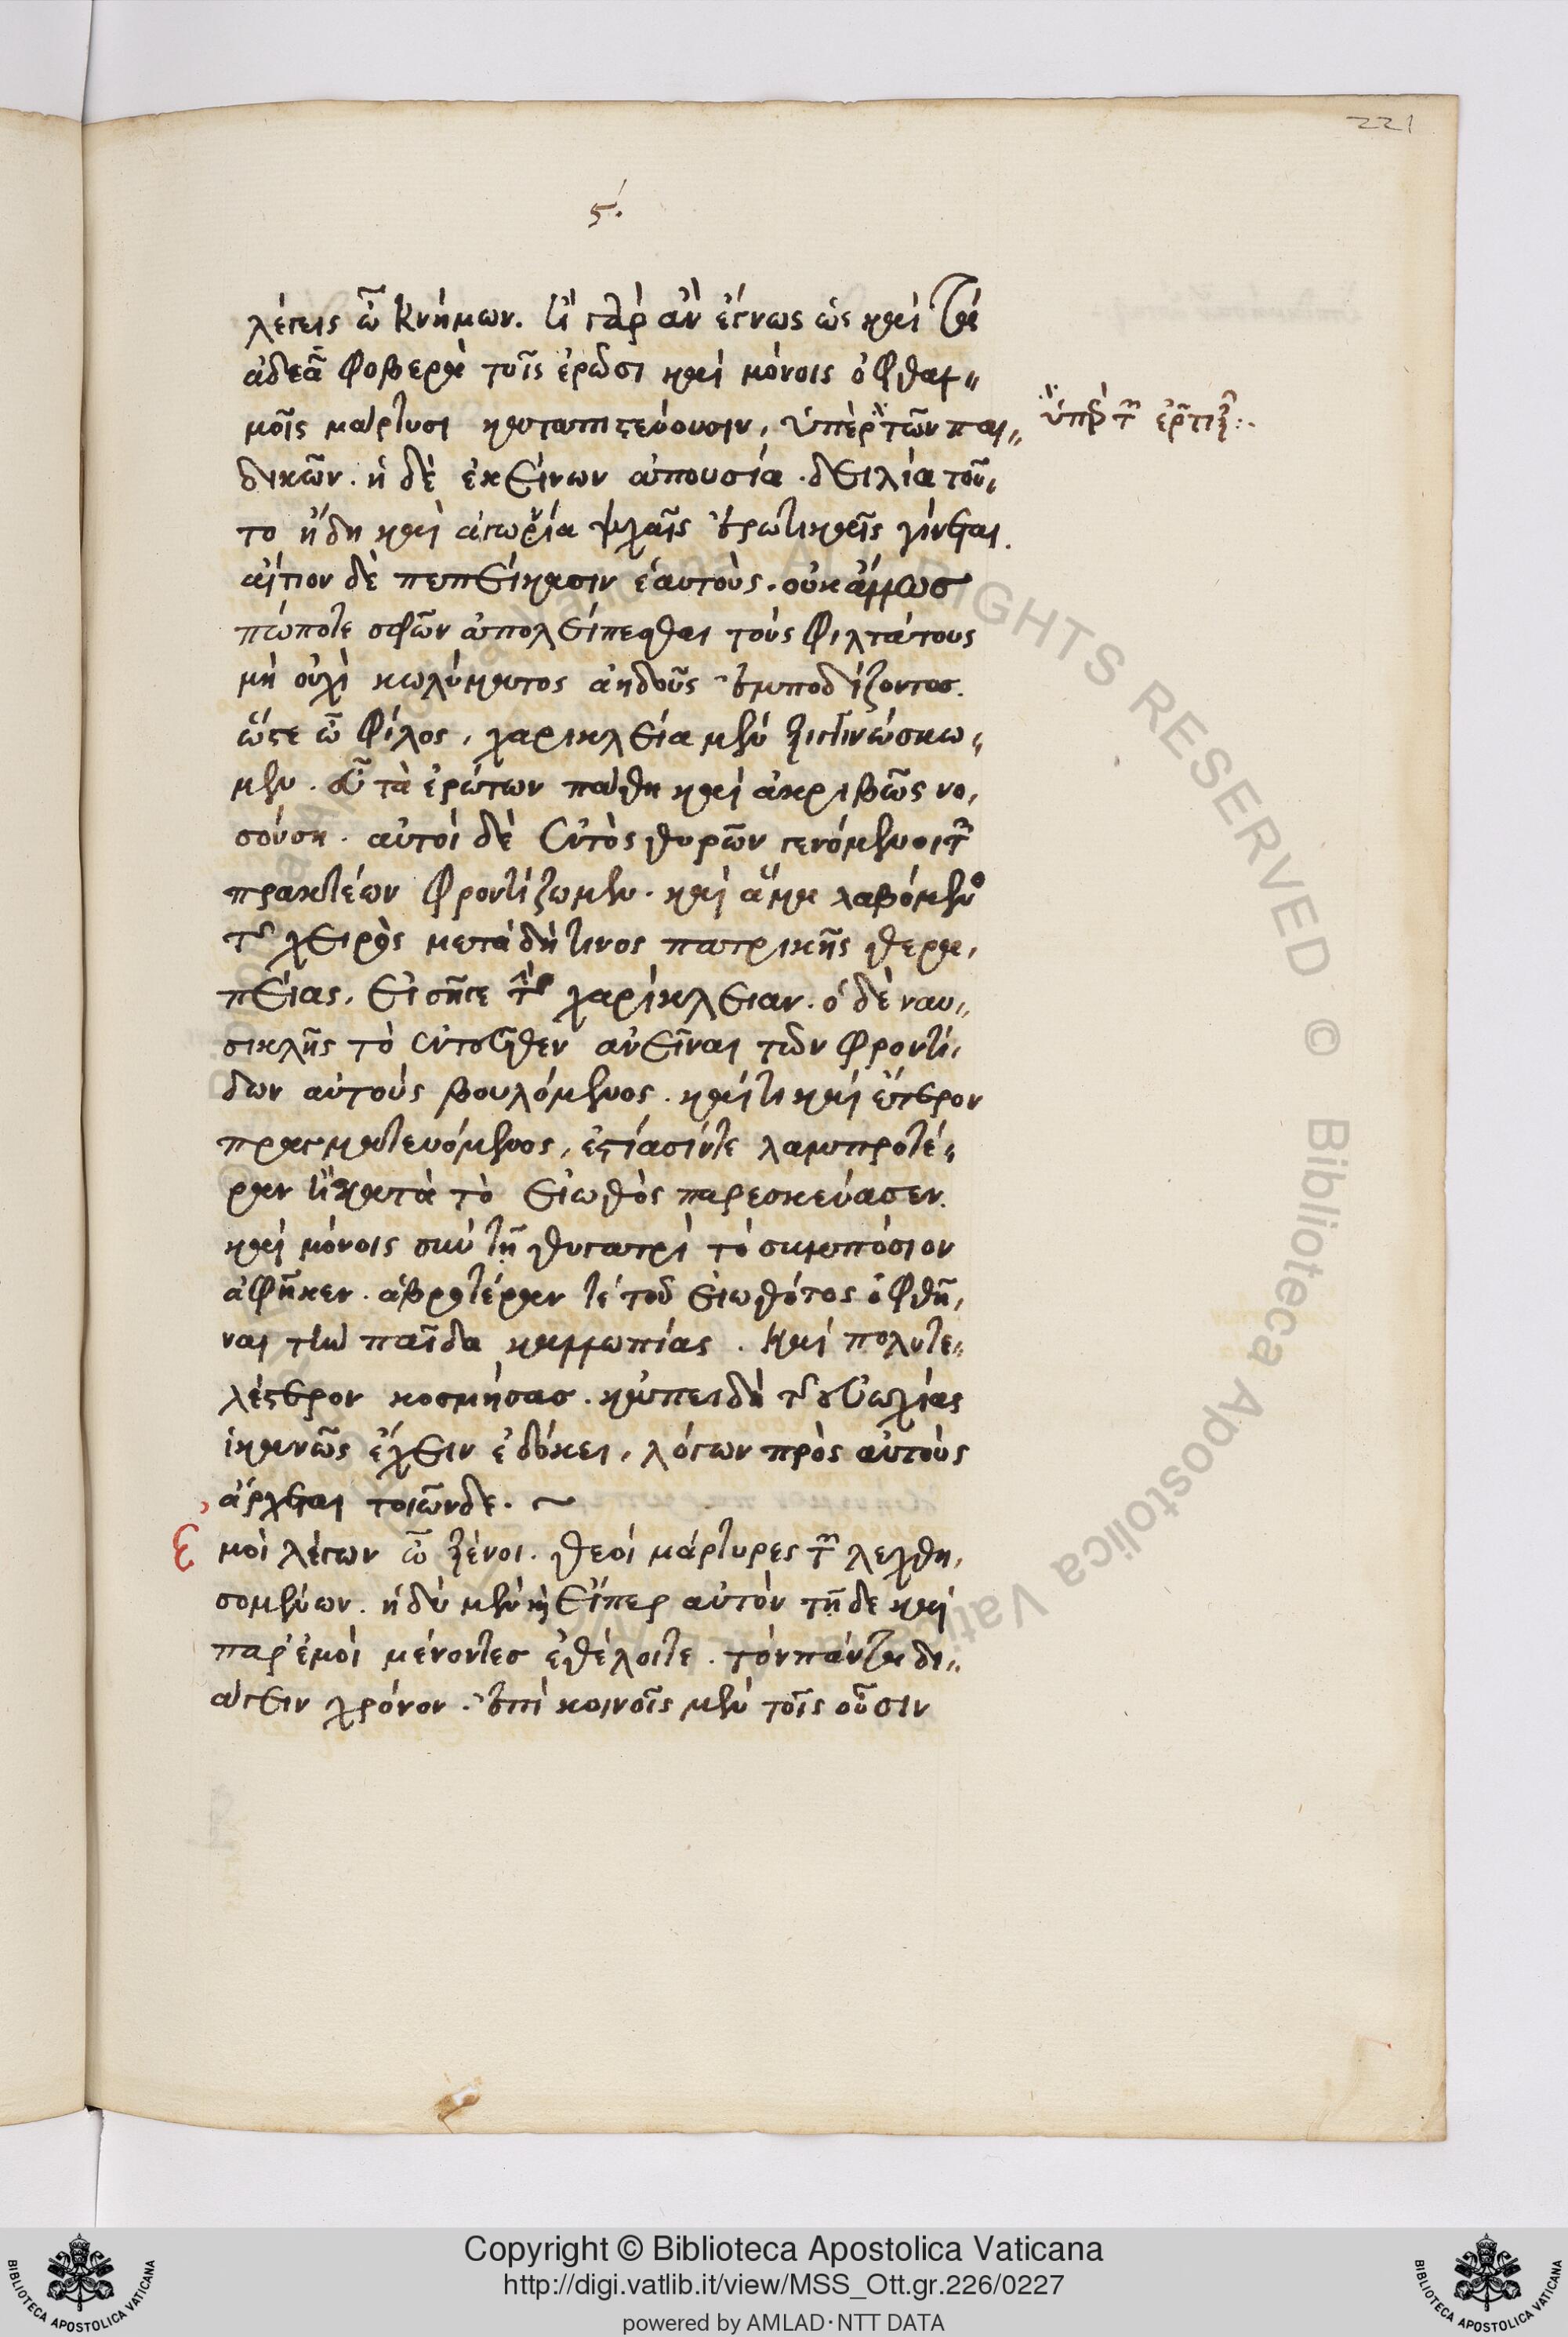 221
ϛ´.
λέγεις ὦ Κνήμων. τί γὰρ ἂν ἔγνως ὡς καὶ τὰ
ἀδεᾶ φοβερὰ τοῖς ἐρῶσι καὶ μόνοις ὀφθαλ„
μοῖς μάρτυσι καταπιστεύουσιν, ὑπὲρ τῶν παι„
ὑπὲρ τῶν
δικῶν. ἡ δὲ ἐκείνων ἀπουσία. δειλία τοῦ„
το ἤδη καὶ ἀγωνία ψυχαῖς ἐρωτικαῖς γίνεται.
αἴτιον δὲ πεπείκασιν ἑαυτοὺς. οὐκ ἄλλως
πώποτε σφῶν ἀπολείπεσθαι τοὺς φιλτάτους
μὴ οὐχὶ κωλύματος ἀηδοῦς ἐμποδίζοντος.
ὥστε ὦ φίλος, χαρικλεία μὲν ξυγγινώσκω„
μεν. τὰ ἐρώτων πάθη καὶ ἀκριβῶς νο,
σούσῃ. αὐτοὶ δὲ ἐντὸς θυρῶν γενόμενοι τῶν
πρακτέων φροντίζωμεν. καὶ ἅμα λαβόμενος
τῆς χειρὸς μετὰ δή τινος πατρικῆς θερα,
πείας, εἰσῆγε τὴν χαρίκλειαν. ὁ δὲ ναυ„
σικλῆς τὸ ἐντεῦθεν ἀνεῖναι τῶν φροντί,
δων αὐτοὺς βουλόμενος. καί τι καὶ ἕτερον
πραγματευόμενος, ἑστίασίν τε λαμπροτέ„
ραν ἢ κατὰ τὸ εἰωθὸς παρεσκεύασεν.
καὶ μόνοις σὺν τῇ θυγατρὶ τὸ συμπόσιον
ἀφῆκεν. ἁβροτέραν τε τοῦ εἰωθότος ὀφθῆ,
ναι τὴν παῖδα καλλωπίας. καὶ πολυτε„
λέστερον κοσμήσας. κἀπειδὴ τῆς εὐωχίας
ἱκανῶς ἔχειν ἐδόκει, λόγων πρὸς αὐτοὺς
ἄρχεται τοιῶνδε. ~
Ἐμοὶ λέγων ὦ ξένοι. θεοὶ μάρτυρες τῶν λεχθη,
σομένων. ἡδὺ μὲν καὶ εἴπερ αὐτὸν τῇδε καὶ
παρ' ἐμοὶ μένοντες ἐθέλοιτε. τὸν πάντα δι„
άγειν χρόνον. ἐπὶ κοινοῖς μὲν τοῖς οὖσιν
RIGHTS RESERVED © Biblioteca Apostolica Vaticana
BIBLIOTECA APOSTOLICA VATICANA
Copyright © Biblioteca Apostolica Vaticana
http://digi.vatlib.it/view/MSS_Ott.gr.226/0227
powered by AMLAD·NTT DATA
BIBLIOTECA APOSTOLICA VATICANA